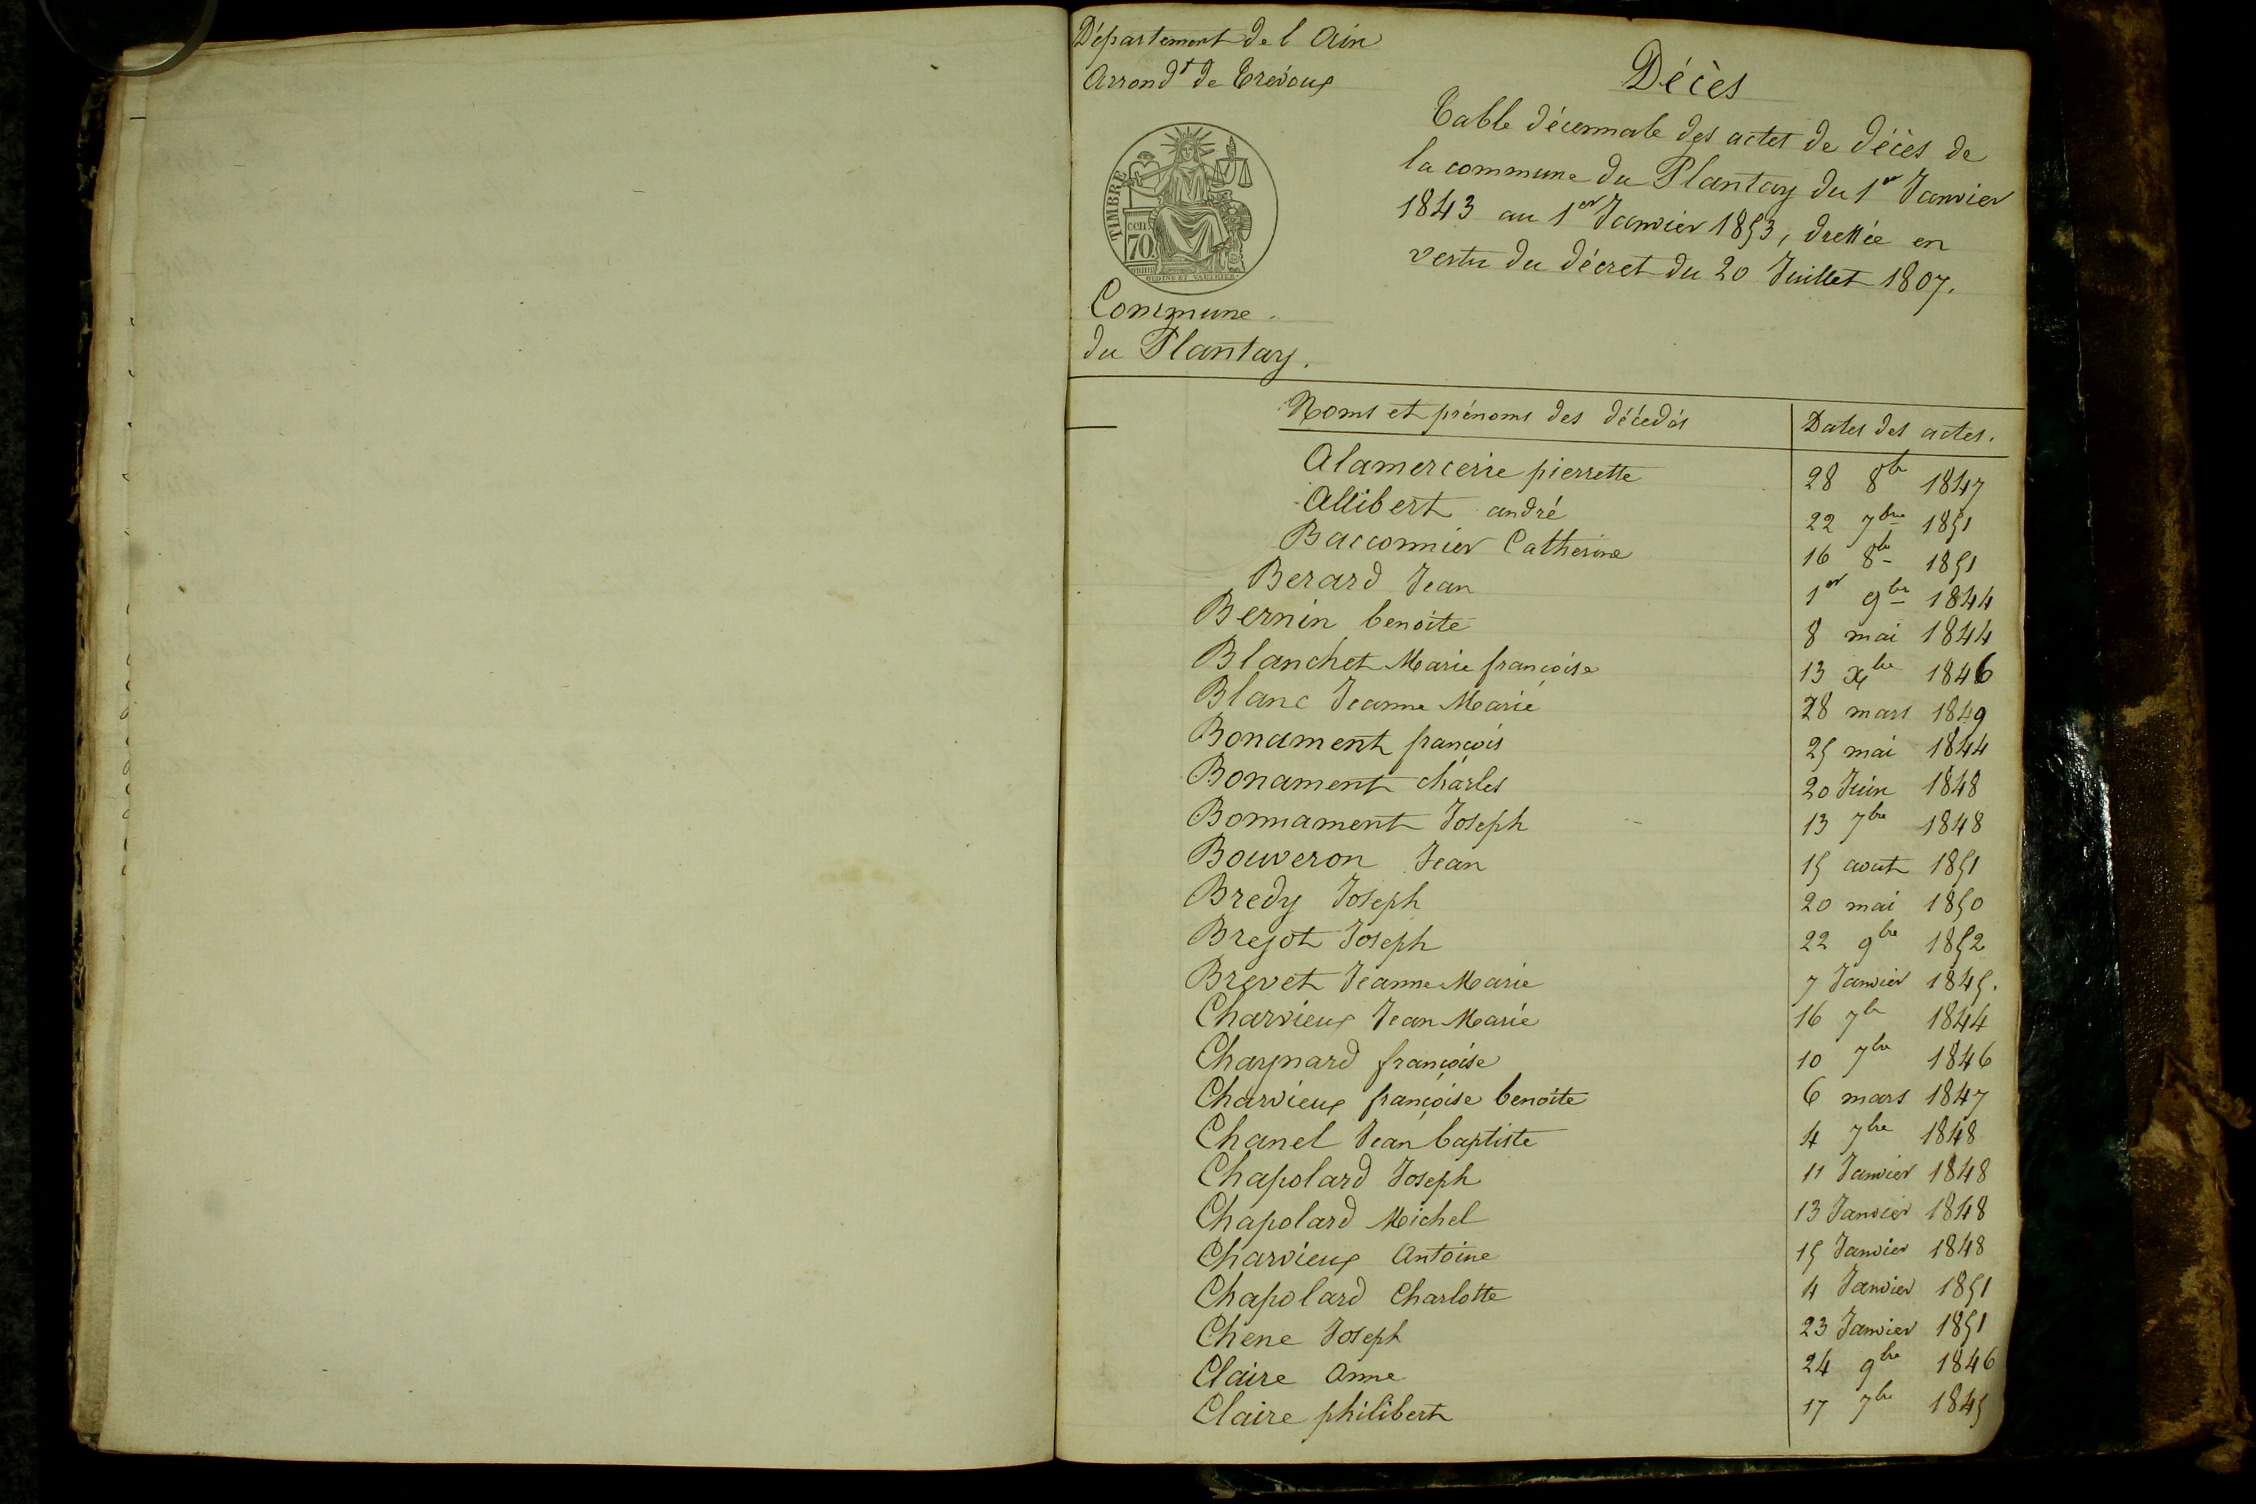 Département de l Ain
Arrondt de Trévoux
TIMBRE
cen
70.
Commune
du Plantay.
Décès
Table décennale des actes de décès de
la commune du Plantay du 1er Janvier
1843 au 1er Janvier 1853, dressée en
vertu du décret du 20 Juillet 1807.
Noms et prénoms des décédés Dates des actes.
Alamercerie pierrette 28 8bre 1847
Allibert andré 22 7bre 1851
Bacconnier Catherine 16 8bre 1851
Berard Jean 1er 9bre 1844
Bernin benoite 8 mai 1844
Blanchet Marie françoise 13 Xbre 1846
Blanc Jeanne Marie 28 mars 1849
Bonament françois 25 mai 1844
Bonament charles 20 Juin 1848
Bonnament Joseph 13 7bre 1848
Bouveron Jean 15 aout 1851
Bredy Joseph 20 mai 1850
Brejot Joseph 22 9bre 1852
Brevet Jeanne Marie 7 Janvier 1845.
Charvieux Jean Marie 16 7bre 1844
Chaynard françoise 10 7bre 1846
Charvieux françoise benoite 6 mars 1847
Chanel Jean baptiste 4 7bre 1848
Chapolard Joseph 11 Janvier 1848
Chapolard Michel 13 Janvier 1848
Charvieux Antoine 15 Janvier 1848
Chapolard Charlotte 4 Janvier 1851
Chene Joseph 23 Janvier 1851
Claire Anne 24 9bre 1846
Claire philibert 17 7bre 1845